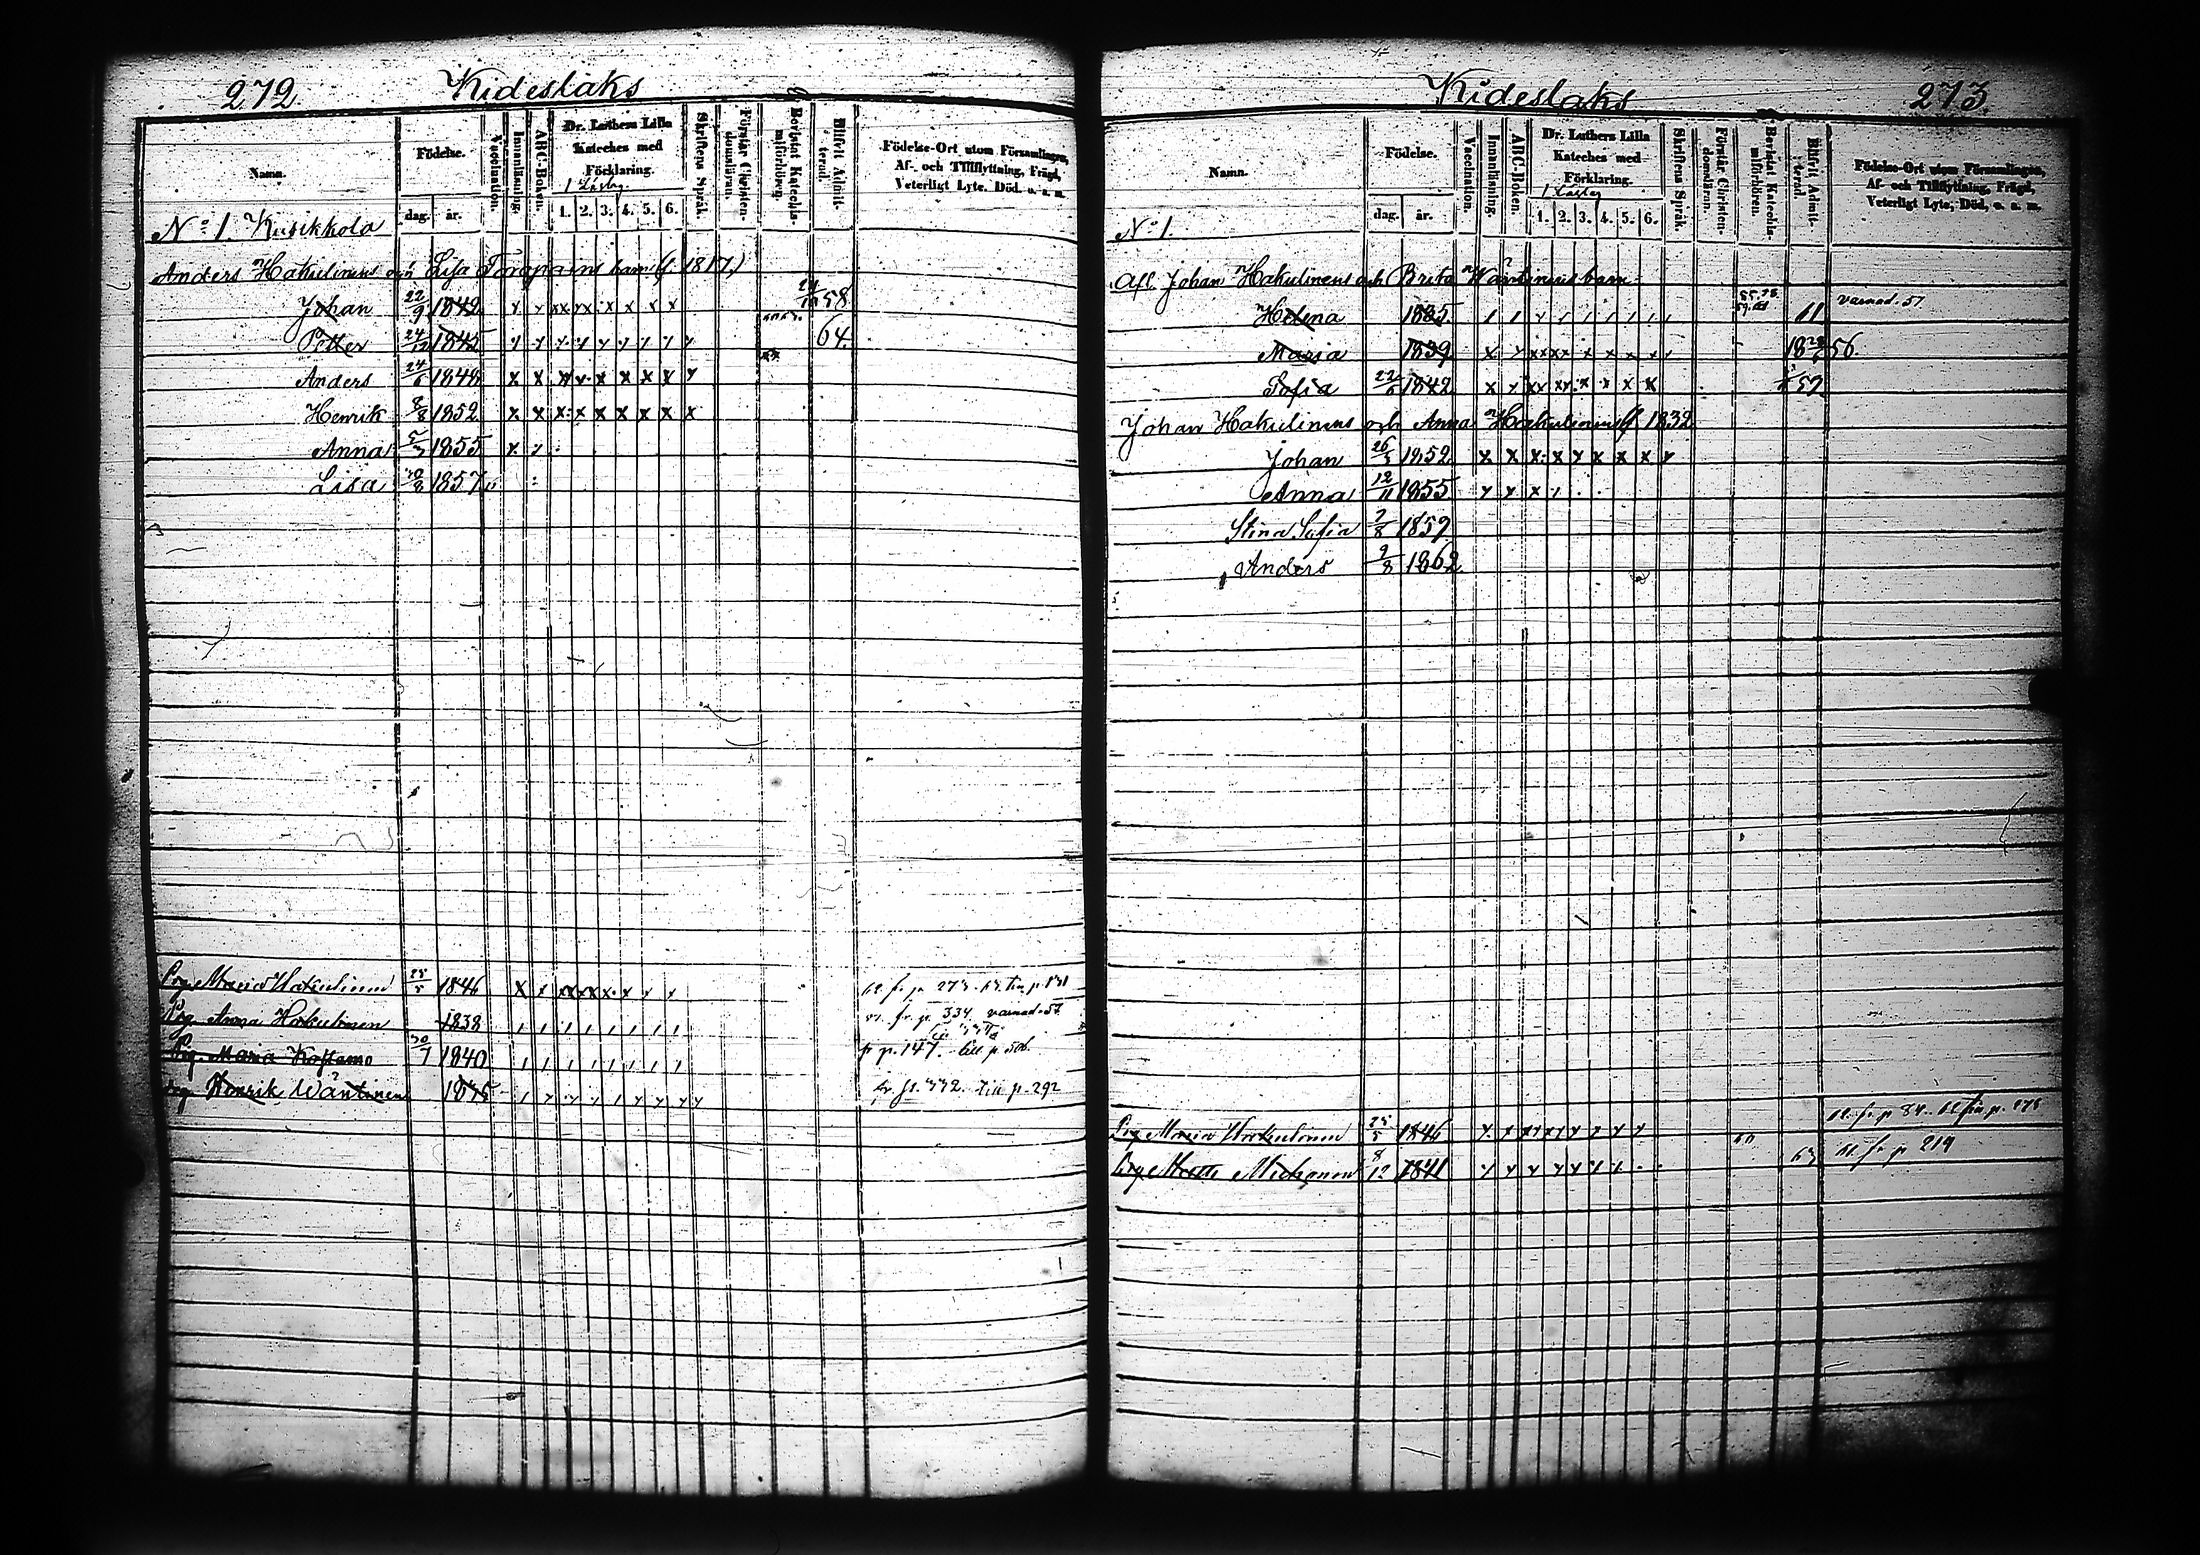 272 Kideslaks
Namn. Födelse. dag. år. Vaccination. Innanläsning. ABC-Boken. Dr. Luthers Lilla Kateches med Förklaring. 1. 2. 3. 4. 5. 6. Skriftens Språk. Förstår Christendomsläran. Bevistat Katechismiförhören. Blifvit Admitterad. Födelse-Ort utom Församlingen, Af- och Tillflyttning, Frägd, Veterligt Lyte, Död. u. s. m.
No 1. Kusikkola
Anders Hakulinens och Lisa Toropainens barn (f. 1817)
Johan 22/9 1842 x y xx yx x x x x 58
Petter 1845 y y y y y y y y y 64.
Anders 24/6 1848 x x x x x x x x y
Henrik 8/8 1852 x x x x x x x x x
Anna 5/7 1855 x y
Lisa 1857
Pig. Maria Hakulinen 25/5 1846 x x xx xx x x x x 62. fr. p. 273.
Pig. Anna Hakulinen 1838 fr. p. 334. varnad
Pig. Maria Koslamo 30/7 1840 fr p. 147. till p 506.
Henrik Wäntinen 1845 fr. p. 332. till p. 292
Kideslaks 273
Namn. Födelse. dag. år. Vaccination. Innanläsning. ABC-Boken. Dr. Luthers Lilla Kateches med Förklaring. 1. 2. 3. 4. 5. 6. Skriftens Språk. Förstår Christendomsläran. Bevistat Katechismiförhören. Blifvit Admitterad. Födelse-Ort utom Församlingen, Af- och Tillflyttning, Frägd, Veterligt Lyte, Död, u. s. m.
No 1.
Afl. Johan Hakulinens och Brita Wäntinens barn
Helena 1835 11 varnad. 57
Maria 1839 x y xx xx x x x x y 56
Sofia 22/6 1842 x y xx xy x x x x 57
Johan Hakulinens och Anna Hakulinens (f. 1832
Johan 26/5 1852 x x x x y x x x y
Anna 12/11 1855 y y x
Stina Sofia 7/8 1859
Anders 9/8 1862
Pig Maria Hakulinen 25/5 1846 62. fr p 84.
8/12 1841 63 61. fr p 219